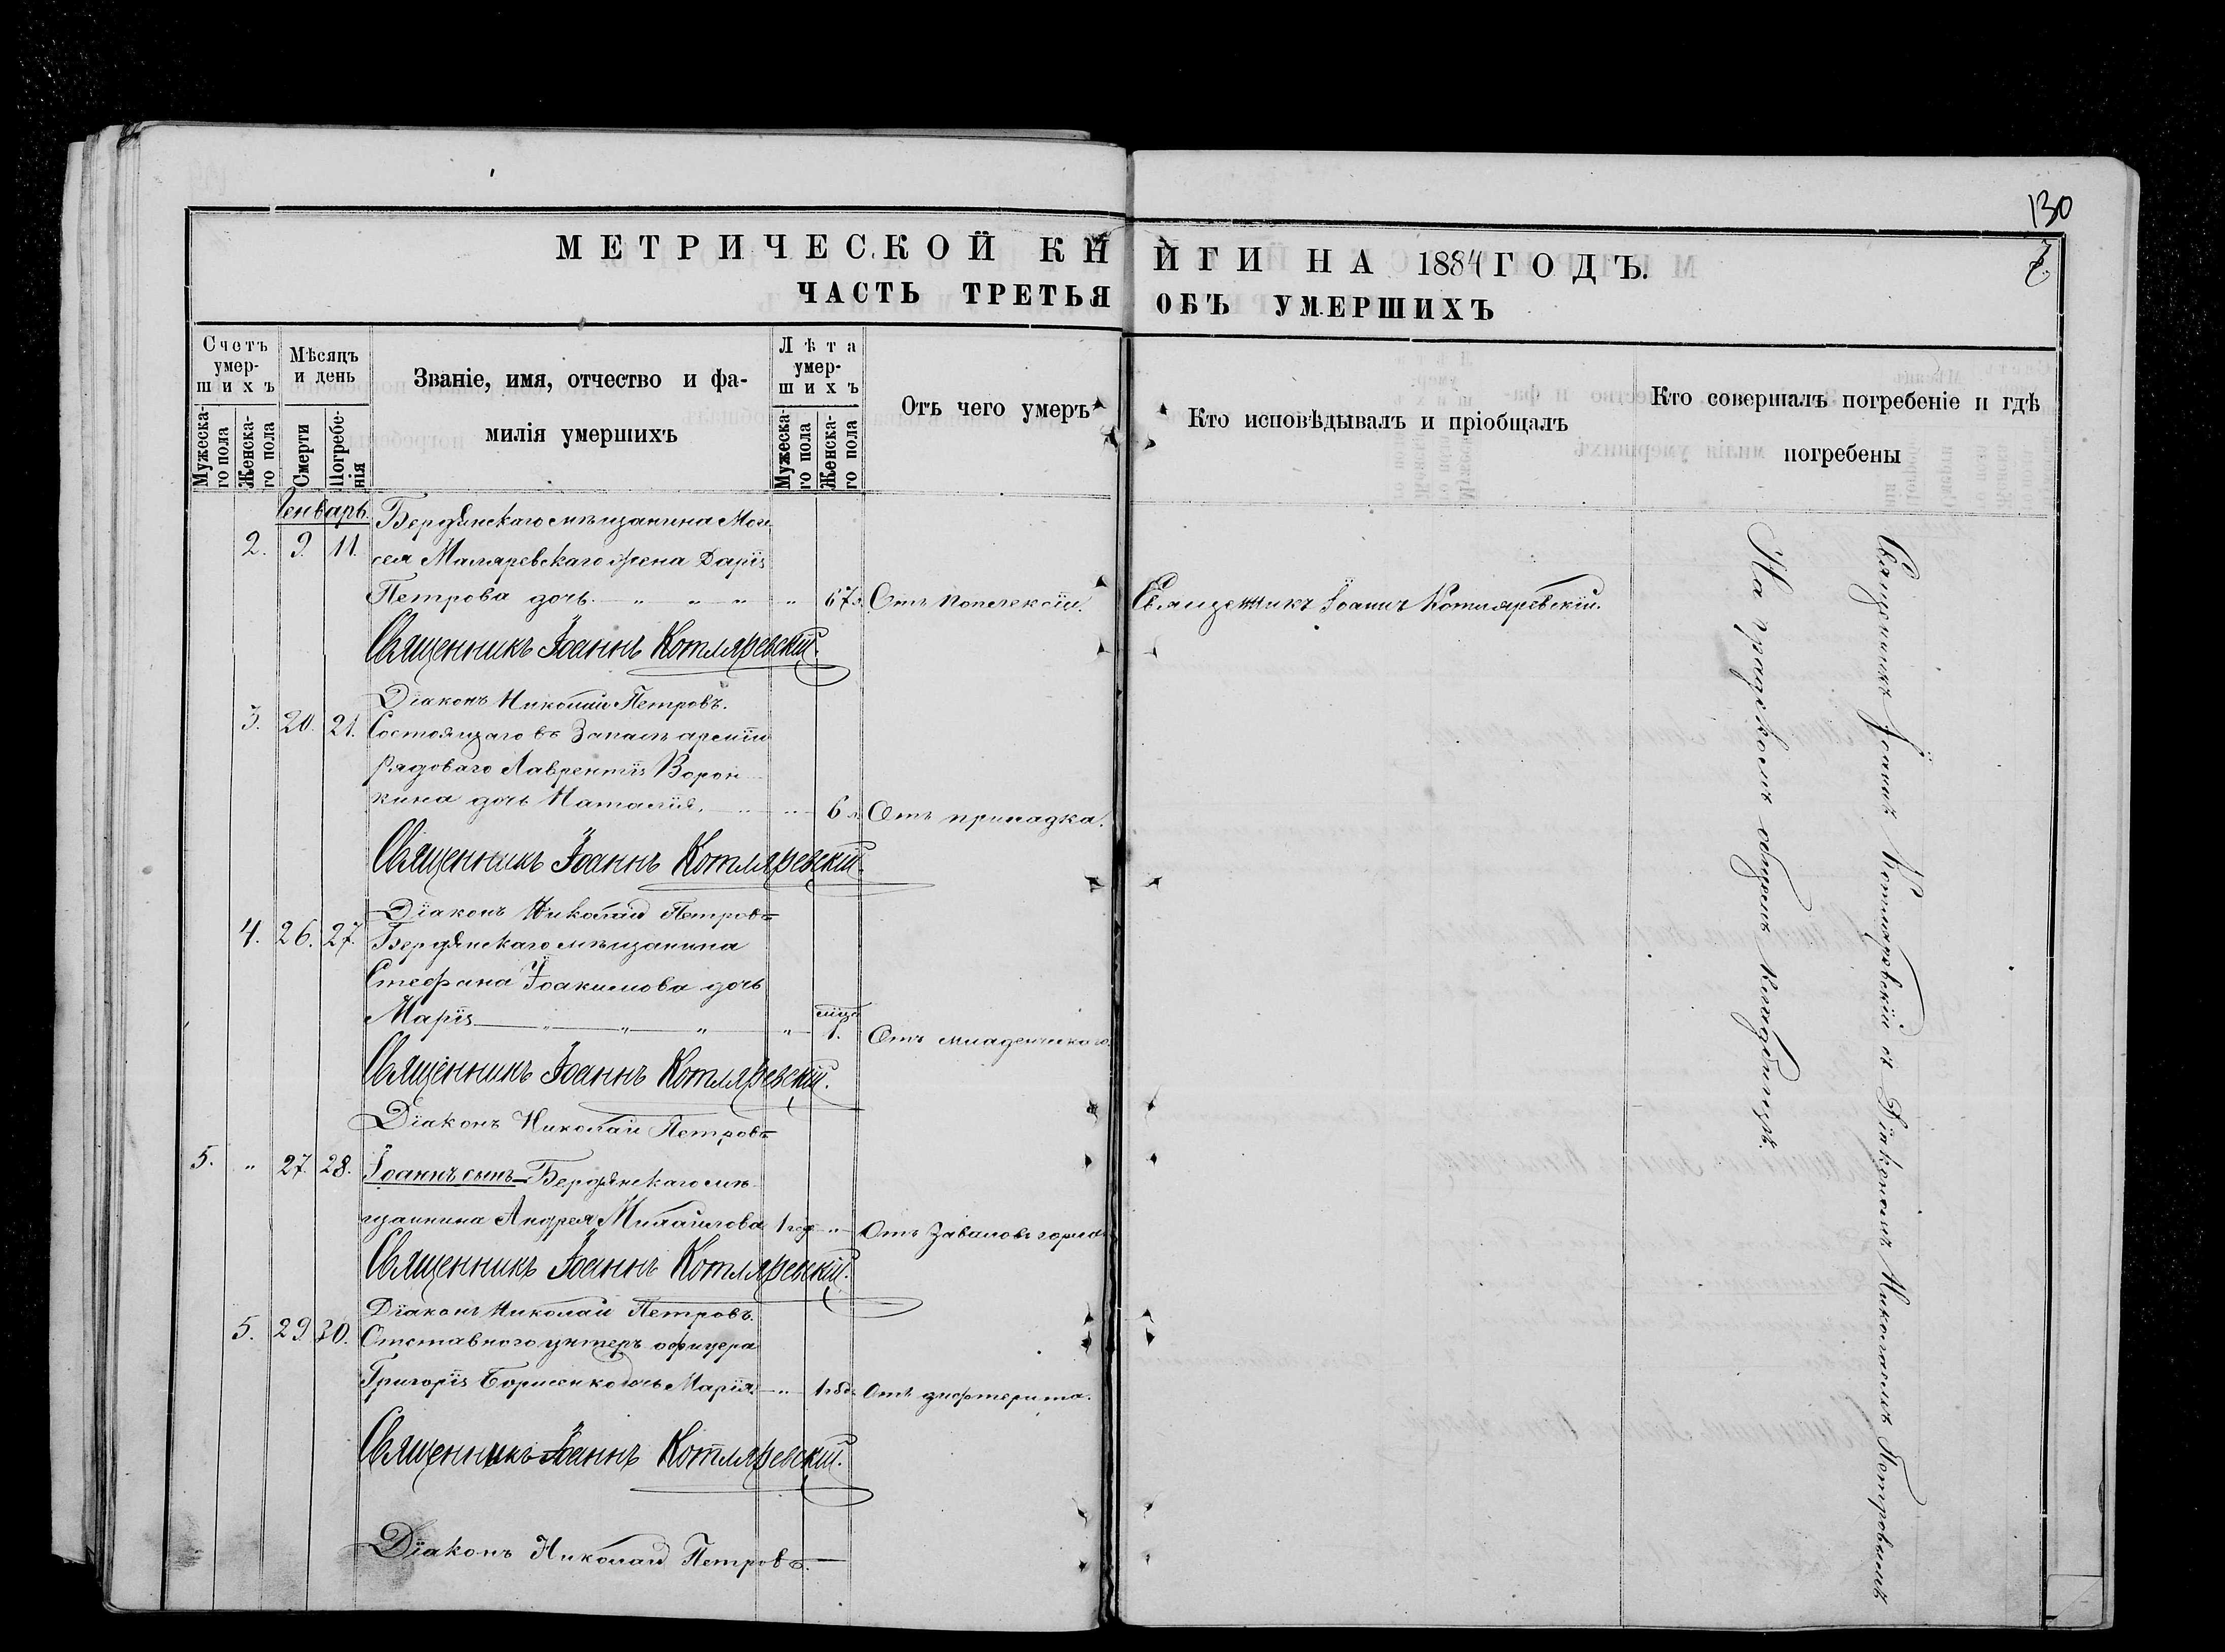 130
МЕТРИЧЕСКОЙ КНИГИ НА 1884 ГОДЪ.
ЧАСТЬ ТРЕТЬЯ ОБЪ УМЕРШИХЪ
Счетъ умер-шихъ
Мужеска-го пола
Женска-го пола
Мѣсяцъ и день
Смерти
Погребе-нія
Званіе, имя, отчество и фа-
милія умершихъ
Лѣта умер-шихъ
Мужеска-го пола
Женска-го пола
Отъ чего умеръ
Кто исповѣдывалъ и пріобщалъ
Кто совершалъ погребеніе и гдѣ
погребены
Генварь.
Бердянскаго мѣщанина Мои
2. 9. 11. сея Маляревскаго жена Дарія
Петрова дочь. " " " " 67 л. Отъ попелексіи. Священникъ Іоаннъ Котляревскій.
Священникъ Іоаннъ Котляревскій.
Діаконъ Николай Петровъ.
3. 20. 21. Состоящаго въ Запасѣ арміи
рядоваго Лаврентія Ворон
кина дочь Наталія. " " 6 л. Отъ припадка.
Священникъ Іоаннъ Котляревскій.
Діаконъ Николай Петровъ
4. 26. 27. Бердянскаго мѣщанина
Стефана Іоакимова дочь
Марія " " " " 1. Отъ младенческаго.
Священникъ Іоаннъ Котляревскій.
Діаконъ Николай Петровъ
5. " 27. 28. Іоаннъ сынъ Бердянскаго мѣ-
щанина Андрея Михайлова 1 годъ " Отъ Заваловъ горла
Священникъ Іоаннъ Котляревскій.
Діаконъ Николай Петровъ.
5. 29 30. Отставного унтеръ офицера
Григорія Борисенко дочь Марія. " 1 годъ Отъ дифтерита.
Священникъ Іоаннъ Котляревскій.
Діаконъ Николай Петровъ.
Священникъ Іоаннъ Котляревскій съ Діакономъ Николаемъ Петровымъ
На градскомъ общемъ кладбищѣ.